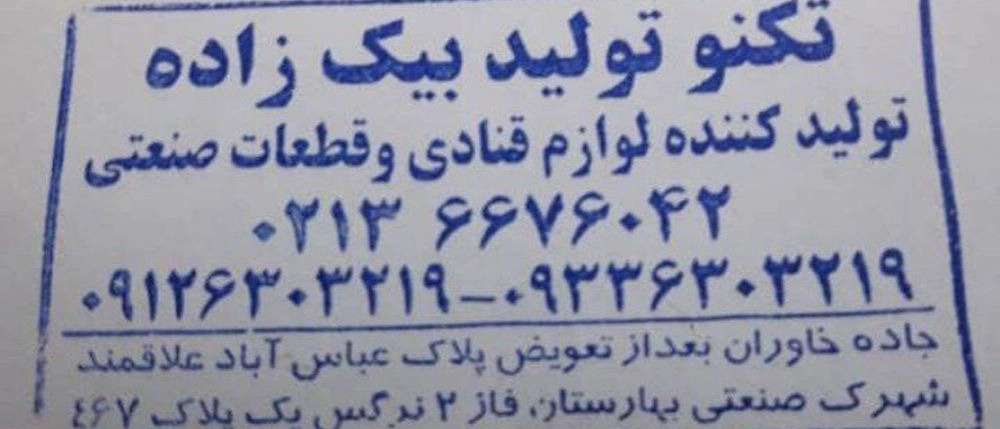 تکنو تولید بیک زاده
تولید کننده لوازم قنادی وقطعات صنعتی
۰۲۱۳ ۶۶۷۶۰۴۲
۰۹۱۲۶۳۰۳۲۱۹-۰۹۳۳۶۳۰۳۲۱۹
جاده خاوران بعداز تعویض پلاک عباس آباد علاقمند
شهرک صنعتی بهارستان، فاز ۲ نرگس یک پلاک ۴۶۷